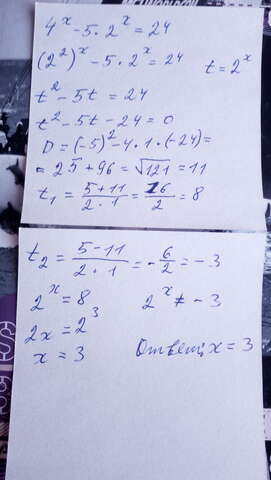 4^x - 5·2^x = 24
(2²)^x - 5·2^x = 24 t = 2^x
t² - 5t = 24
t² - 5t - 24 = 0
D = (-5)² - 4·1·(-24) =
= 25 + 96 = √121 = 11
t₁ = (5+11)/(2·1) = 16/2 = 8
t₂ = (5-11)/(2·1) = -6/2 = -3
2^x = 8 2^x ≠ -3
2x = 2³
x = 3 Ответ: x = 3